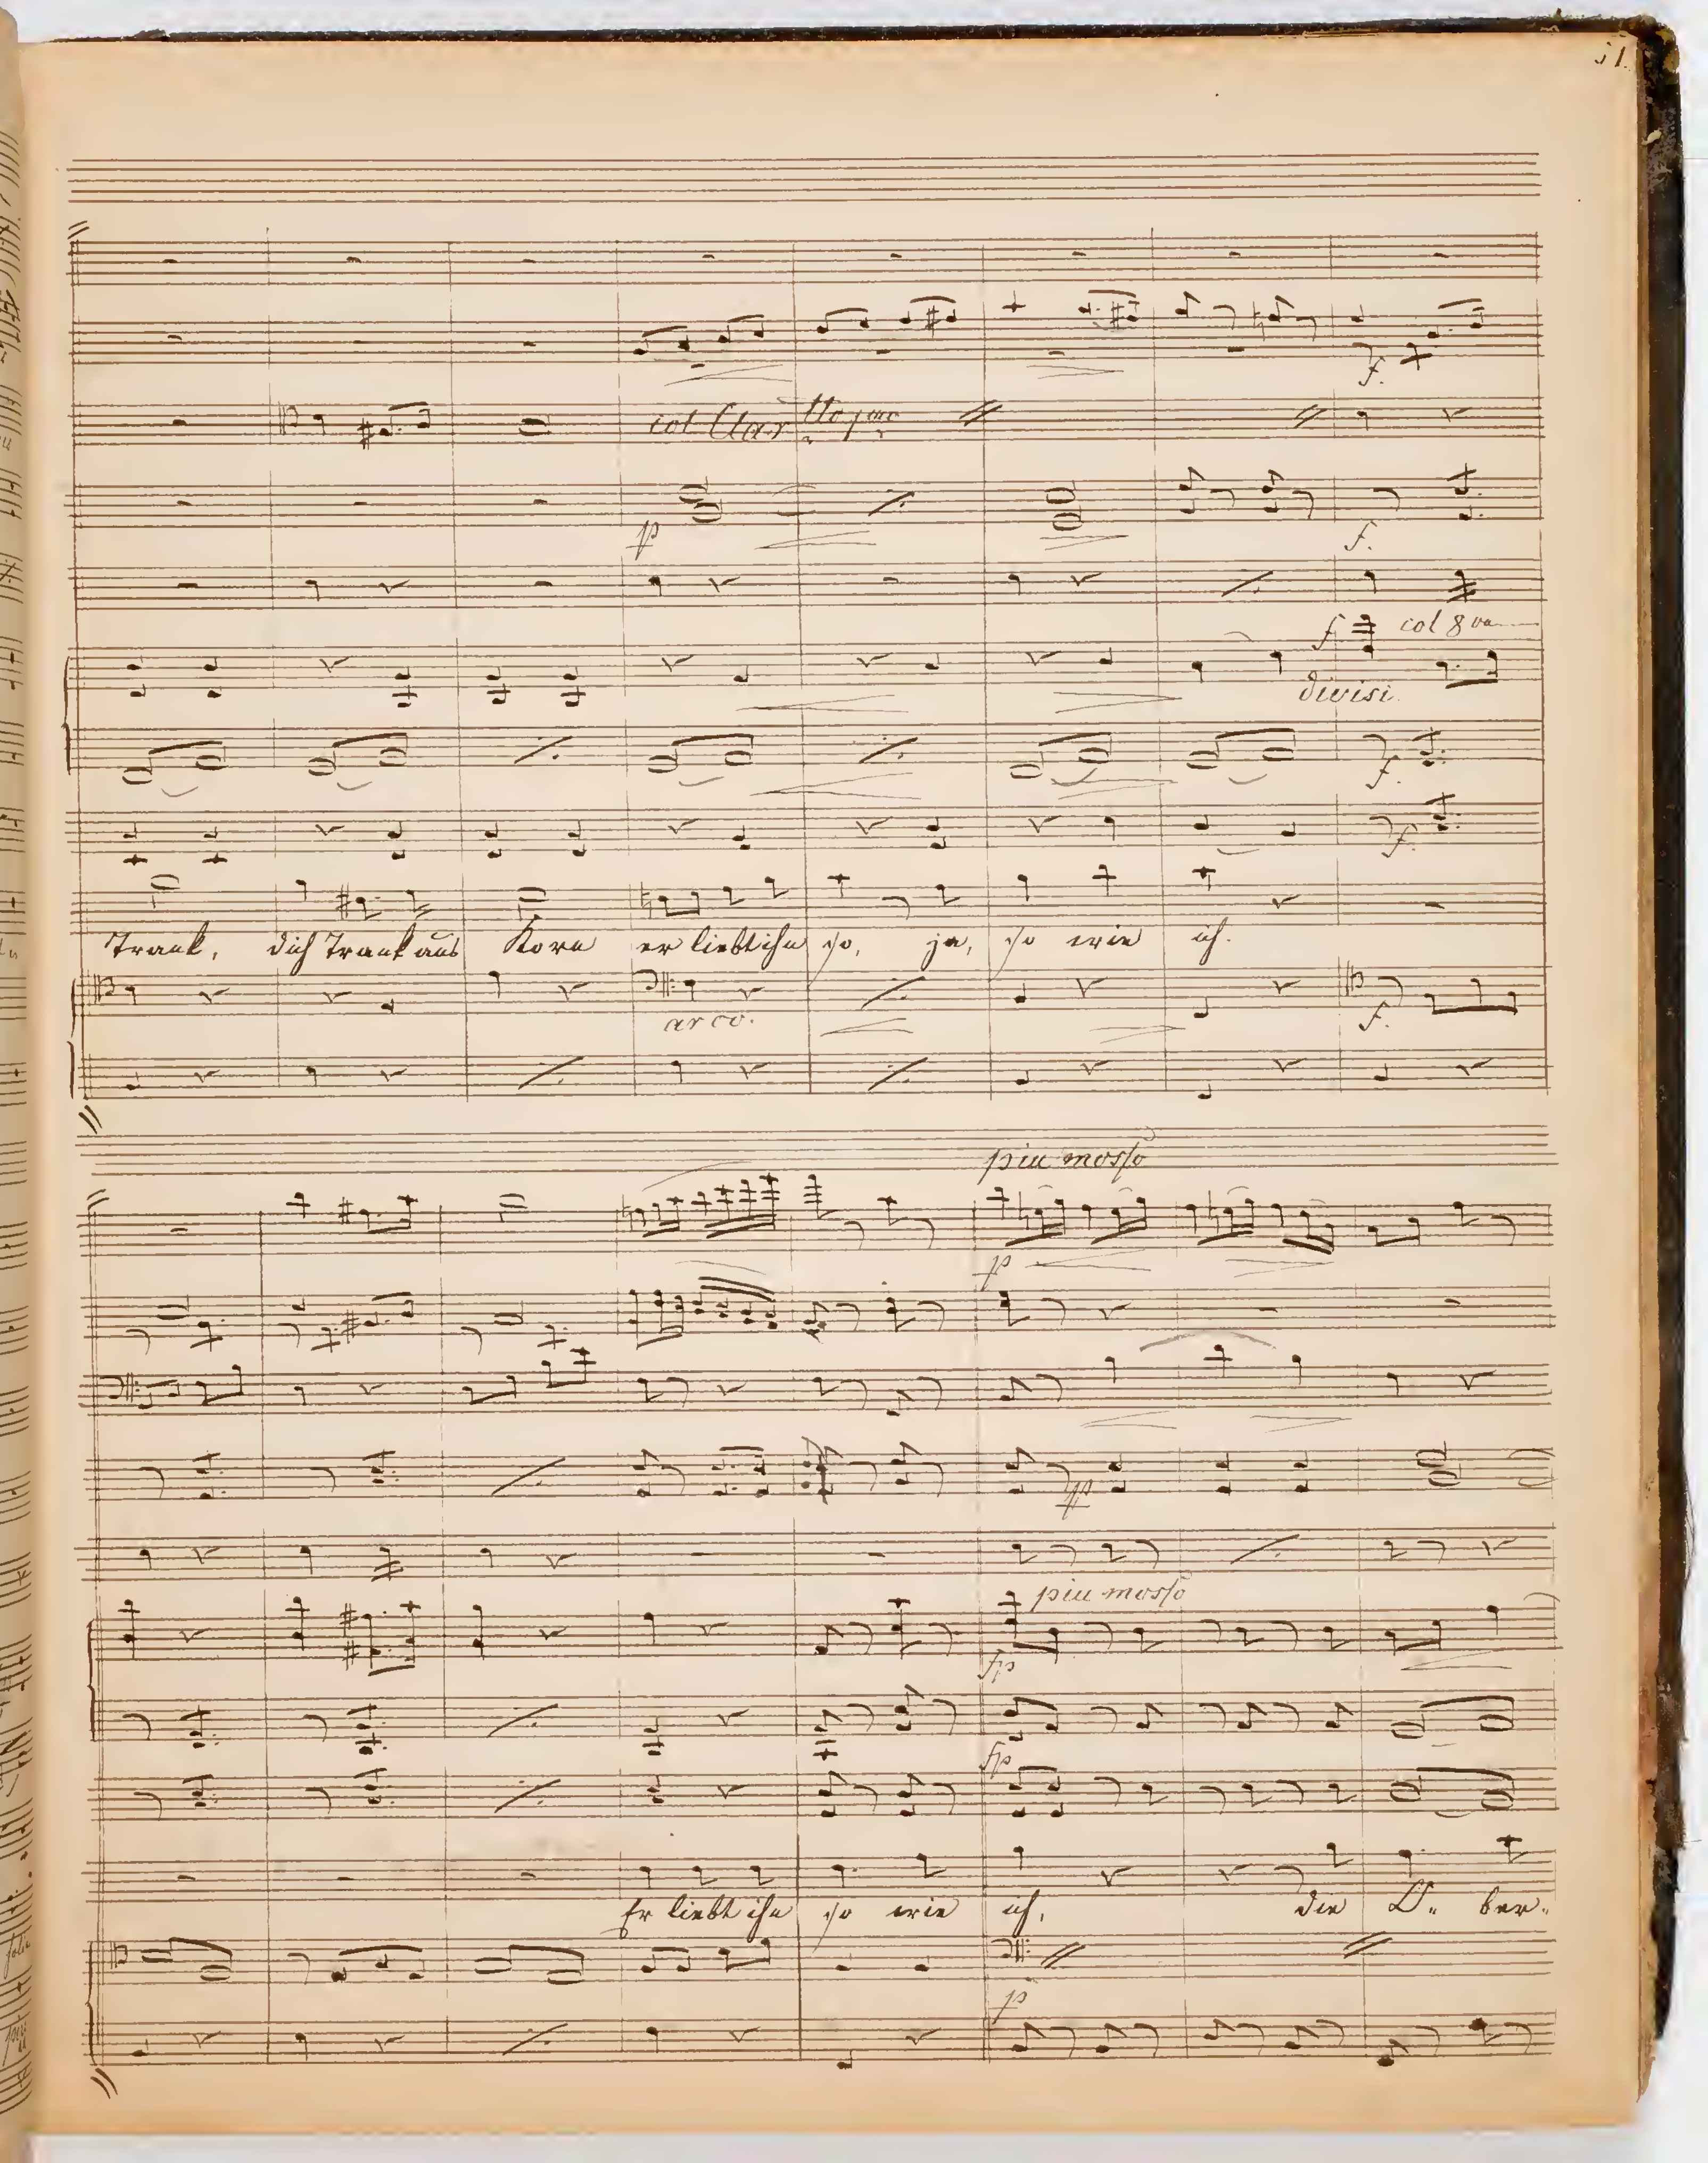 51.
col Clar tto pmo
p
f.
f.
f. col 8va
divisi.
f.
f.
Trank, dich Trank aus Korn er liebt ihn so, ja, so wie ich.
arco.
f.
piu mosso
p
pp
piu mosso
fp
fp
Er liebt ihn so wie ich, die O- ber-
p